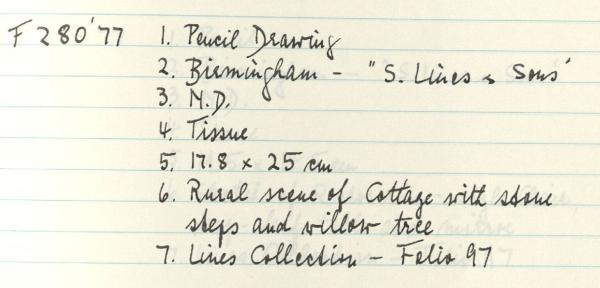 F 280'77 1. Pencil Drawing
2. Birmingham - "S. Lines & Sons"
3. N.D.
4. Tissue
5. 17.8 x 25 cm
6. Rural scene of Cottage with stone
steps and willow tree
7. Lines Collection - Folio 97